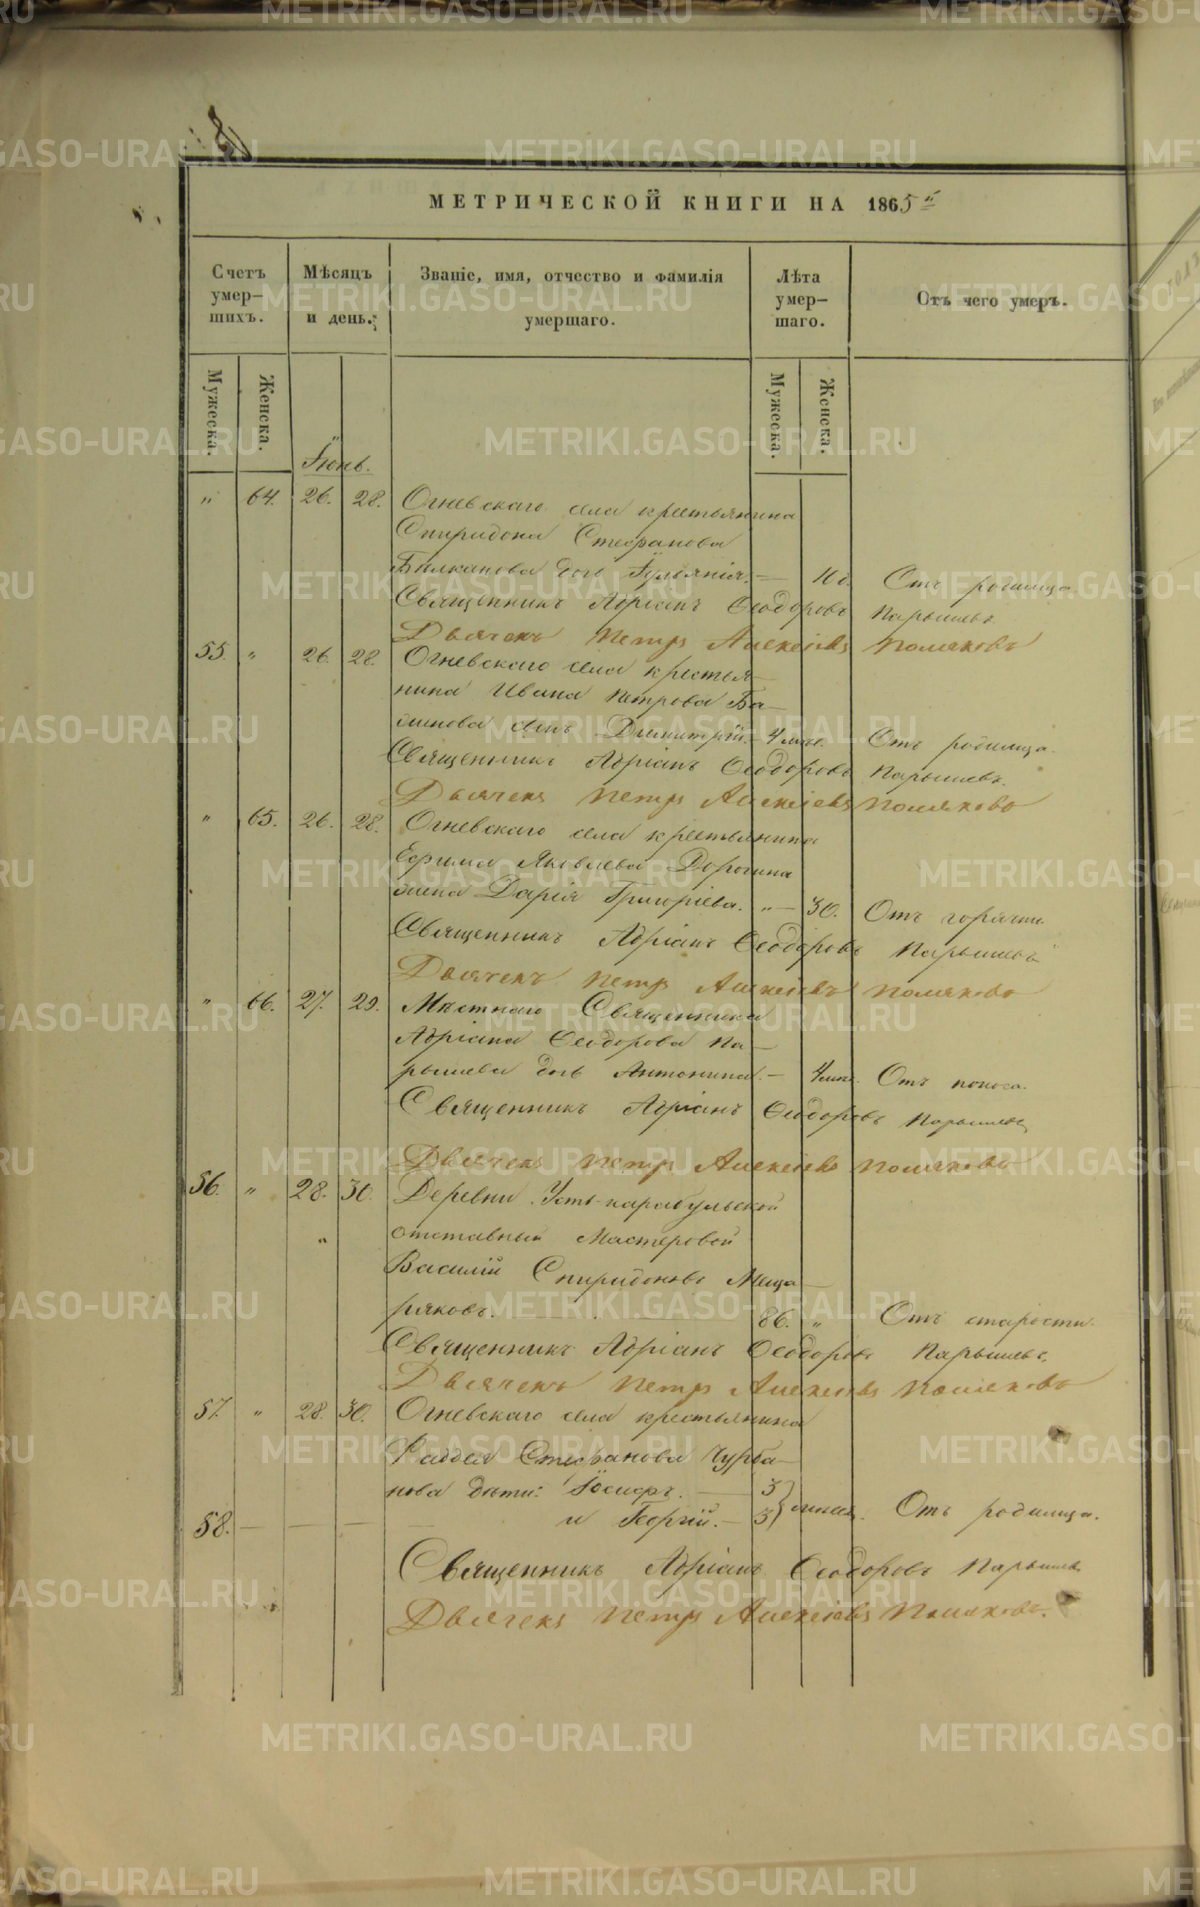 МЕТРИЧЕСКОЙ КНИГИ НА 1865й
Счетъ умер-шихъ.
Мѣсяцъ и день.
Званіе, имя, отчество и фамилія умершаго.
Лѣта умер-шаго.
Отъ чего умеръ.
Мужеска.
Женска.
Мужеска.
Женска.
Іюнь.
" 64. 26. 28. Огневскаго села крестьянина
Спиридона Стефанова
дочь Іуліанія. — Отъ родимца
Священникъ Адріанъ Ѳеодоровъ Парышевъ
Дьячекъ Петръ Алексѣевъ Поляковъ
55. " 26. 28. Огневскаго села крестья-
нина Ивана Петрова Ба-
сынъ Димитрій. — 4 мѣс. Отъ родимца.
Священникъ Адріанъ Ѳеодоровъ Парышевъ.
Дьячекъ Петръ Алексѣевъ Поляковъ
" 65. 26. 28. Огневскаго села крестьянина
Ефима Яковлева Дорогина
жена Дарія Григоріева. " — 30. Отъ горячки.
Священникъ Адріанъ Ѳеодоровъ Парышевъ
Дьячекъ Петръ Алексѣевъ Поляковъ
" 66. 27. 29. Мѣстнаго Священника
Адріана Ѳеодорова Па-
рышева дочь Антонина. — 4 мѣс. Отъ поноса.
Священникъ Адріанъ Ѳеодоровъ Парышевъ
Дьячекъ Петръ Алексѣевъ Поляковъ
56. " 28. 30. Деревни Усть-карабульской
" отставный Мастеровой
Василій Спиридоновъ Меща-
ряковъ. 86. " Отъ старости.
Священникъ Адріанъ Ѳеодоровъ Парышевъ
Дьячекъ Петръ Алексѣевъ Поляковъ
57. " 28. 30. Огневскаго села крестьянина
Фаддея Стефанова Чурба-
нова дѣти: Іосифъ. — 3
58. — и Георгій. — 3 Отъ родимца.
Священникъ Адріанъ Ѳеодоровъ Парышевъ
Дьячекъ Петръ Алексѣевъ Поляковъ.
METRIKI.GASO-URAL.RU